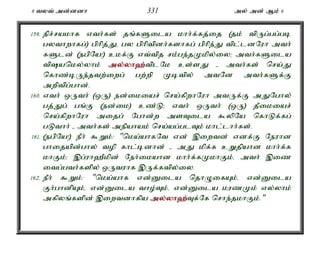 8 வலவ் அன்னனா 331 அல் அன் ஆம் 6
159. நிச்சயமாக எவர்கள் தங்களுடைய மார்க்கத்தை (தம் விருப்பப்படி
பலவாறாகப்) பிரித்து, பல பிரிவினர்களாகப் பிரிந்து விட்டனரோ அவர்
களுடன் (நபியே!) உமக்கு எவ்வித சம்பந்தமுமில்லை; அவர்களுடைய
விஷயமெல்லாம் அல்லாஹ்விடமே உள்ளது - அவர்கள் செய்து
கொண்டிருந்தவற்றைப் பற்றி முடிவில் அவனே அவர்களுக்கு
அறிவிப்பான்.
160. எவர் ஒருவர் (ஒரு) நன்மையைச் செய்கிறாரோ அவருக்கு அதுபோல்
பத்துப் பங்கு (நன்மை) உண்டு; எவர் ஒருவர் (ஒரு) தீமையைச்
செய்கிறாரோ அதைப் போன்ற அளவுடைய கூலியே கொடுக்கப்
படுவார் - அவர்கள் அநியாயம் செய்யப்படவும் மாட்டார்கள்.
161. (நபியே!) நீர் கூறும்: "மெய்யாகவே என் இறைவன் எனக்கு நேரான
பாதையின்பால் வழி காட்டினான் - அது மிக்க உறுதியான மார்க்க
மாகும்; இப்ராஹீமின் நேர்மையான மார்க்கமுமாகும், அவர் இணை
வைப்பவர்களில் ஒருவராக இருக்கவில்லை.
162. நீர் கூறும்: "மெய்யாக என்னுடைய தொழுகையும், என்னுடைய
குர்பானியும், என்னுடைய வாழ்வும், என்னுடைய மரணமும் எல்லாம்
அகிலங்களின் இறைவனாகிய அல்லாஹ்வுக்கே சொந்தமாகும்."